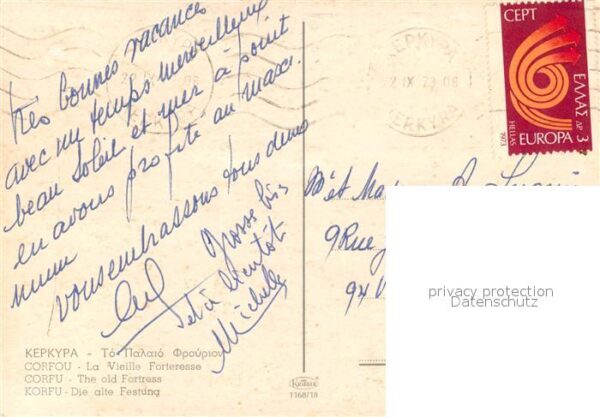 Très bonnes vacances
avec un temps merveilleux
beau soleil et mer à point
en avons profité au maxi.
vous embrassons tous deux
Grosse bis
et à bientôt
Michelle
ΚΕΡΚΥΡΑ - Τό Παλαιό Φρούριον
CORFOU - La Vieille Forteresse
CORFU - The old Fortress
KORFU - Die alte Festung
1168/18
ΚΕΡΚΥΡΑ
IX 73 08
KEPKYRA
CEPT
ΕΛΛΑΣ ΔΡ 3
HELLAS
1973
EUROPA
Mr et
9 Rue
94
privacy protection
Datenschutz